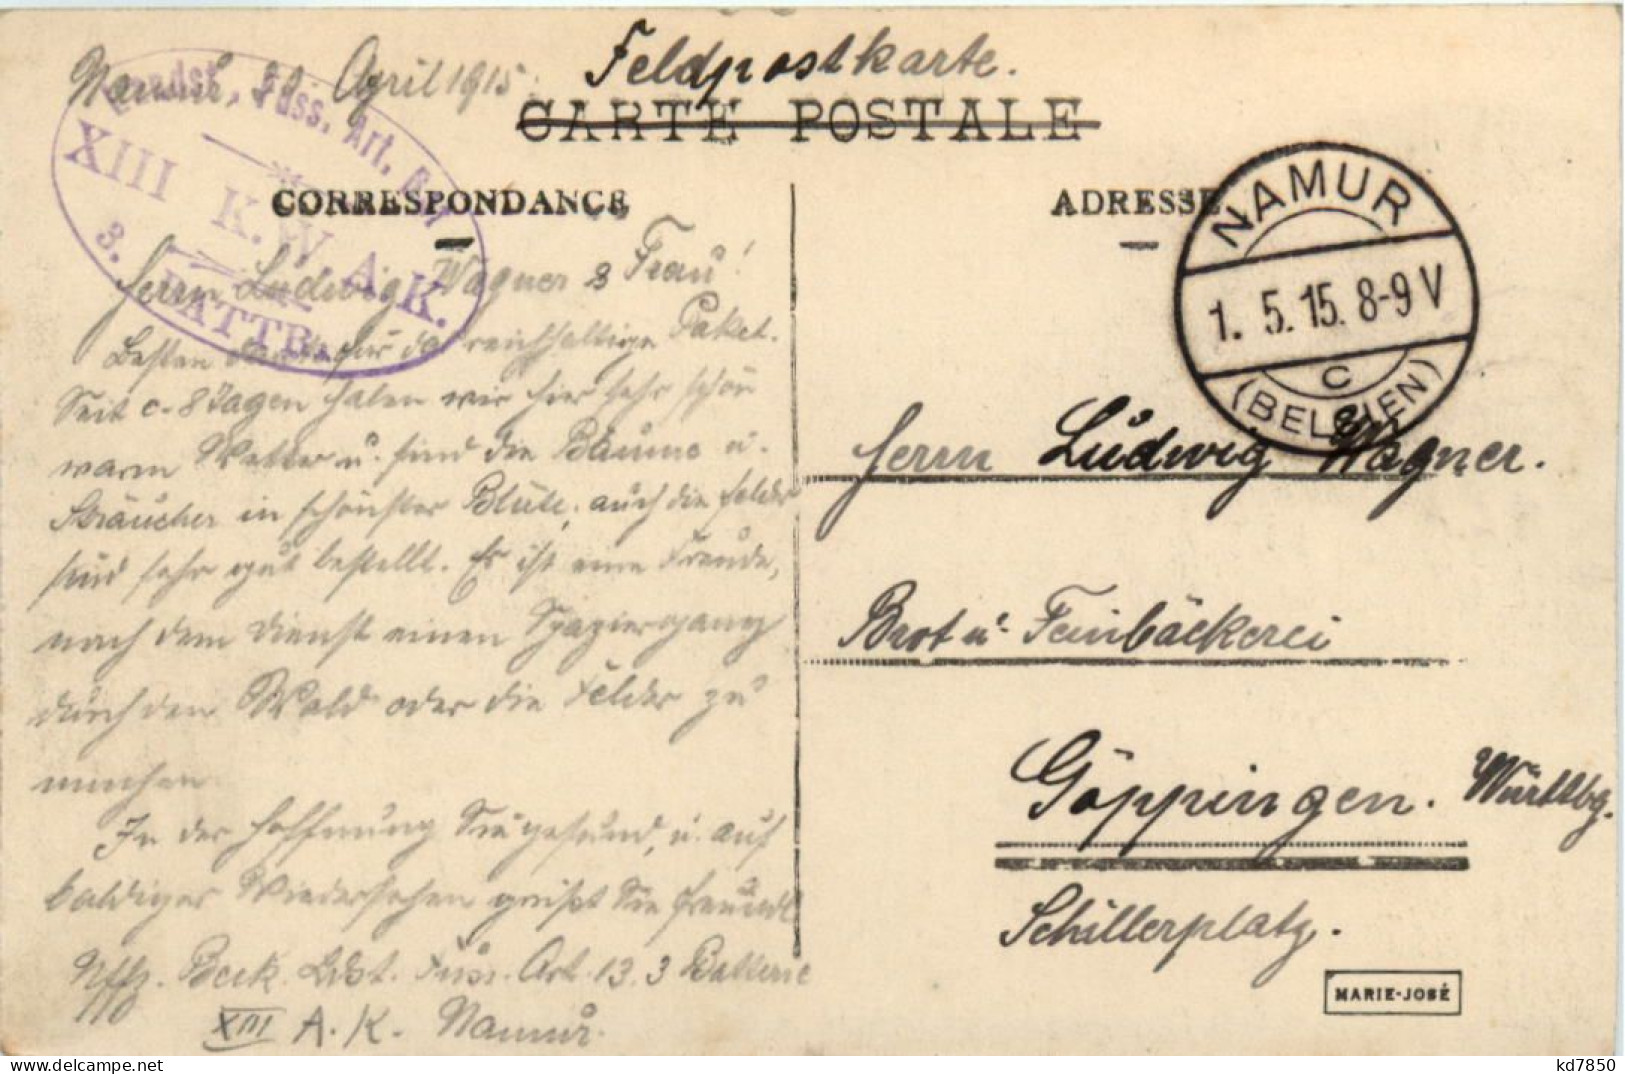 Namur, 30. April 1915.
Feldpostkarte.
CARTE POSTALE
Landst. Fuss. Art. Bat
XIII K.W.A.K.
3. BATTR.
CORRESPONDANCE
Herrn Ludwig Wagner & Frau!
Besten Dank für das reichhaltige Paket.
Seit c. 8 Tagen haben wir hier sehr schön
warm Wetter u. sind die Bäume u.
Sträucher in schönster Blüte, auch die Felder
sind sehr gut bestellt. Es ist eine Freude,
nach dem Dienst einen Spaziergang
durch den Wald oder die Felder zu
machen
In der Hoffnung Sie gesund, u. auf
baldiges Wiedersehen grüßt Sie freundl
Uffz. Beck. Ldst. Fuss. Art. 13. 3 Batterie
XIII A.K. Namur.
ADRESSE
NAMUR
1. 5. 15. 8-9 V
C
(BELGIEN)
Herrn Ludwig Wagner.
Brot u. Feinbäckerei
Göppingen. Württbg.
Schillerplatz.
MARIE-JOSÉ
kd7850